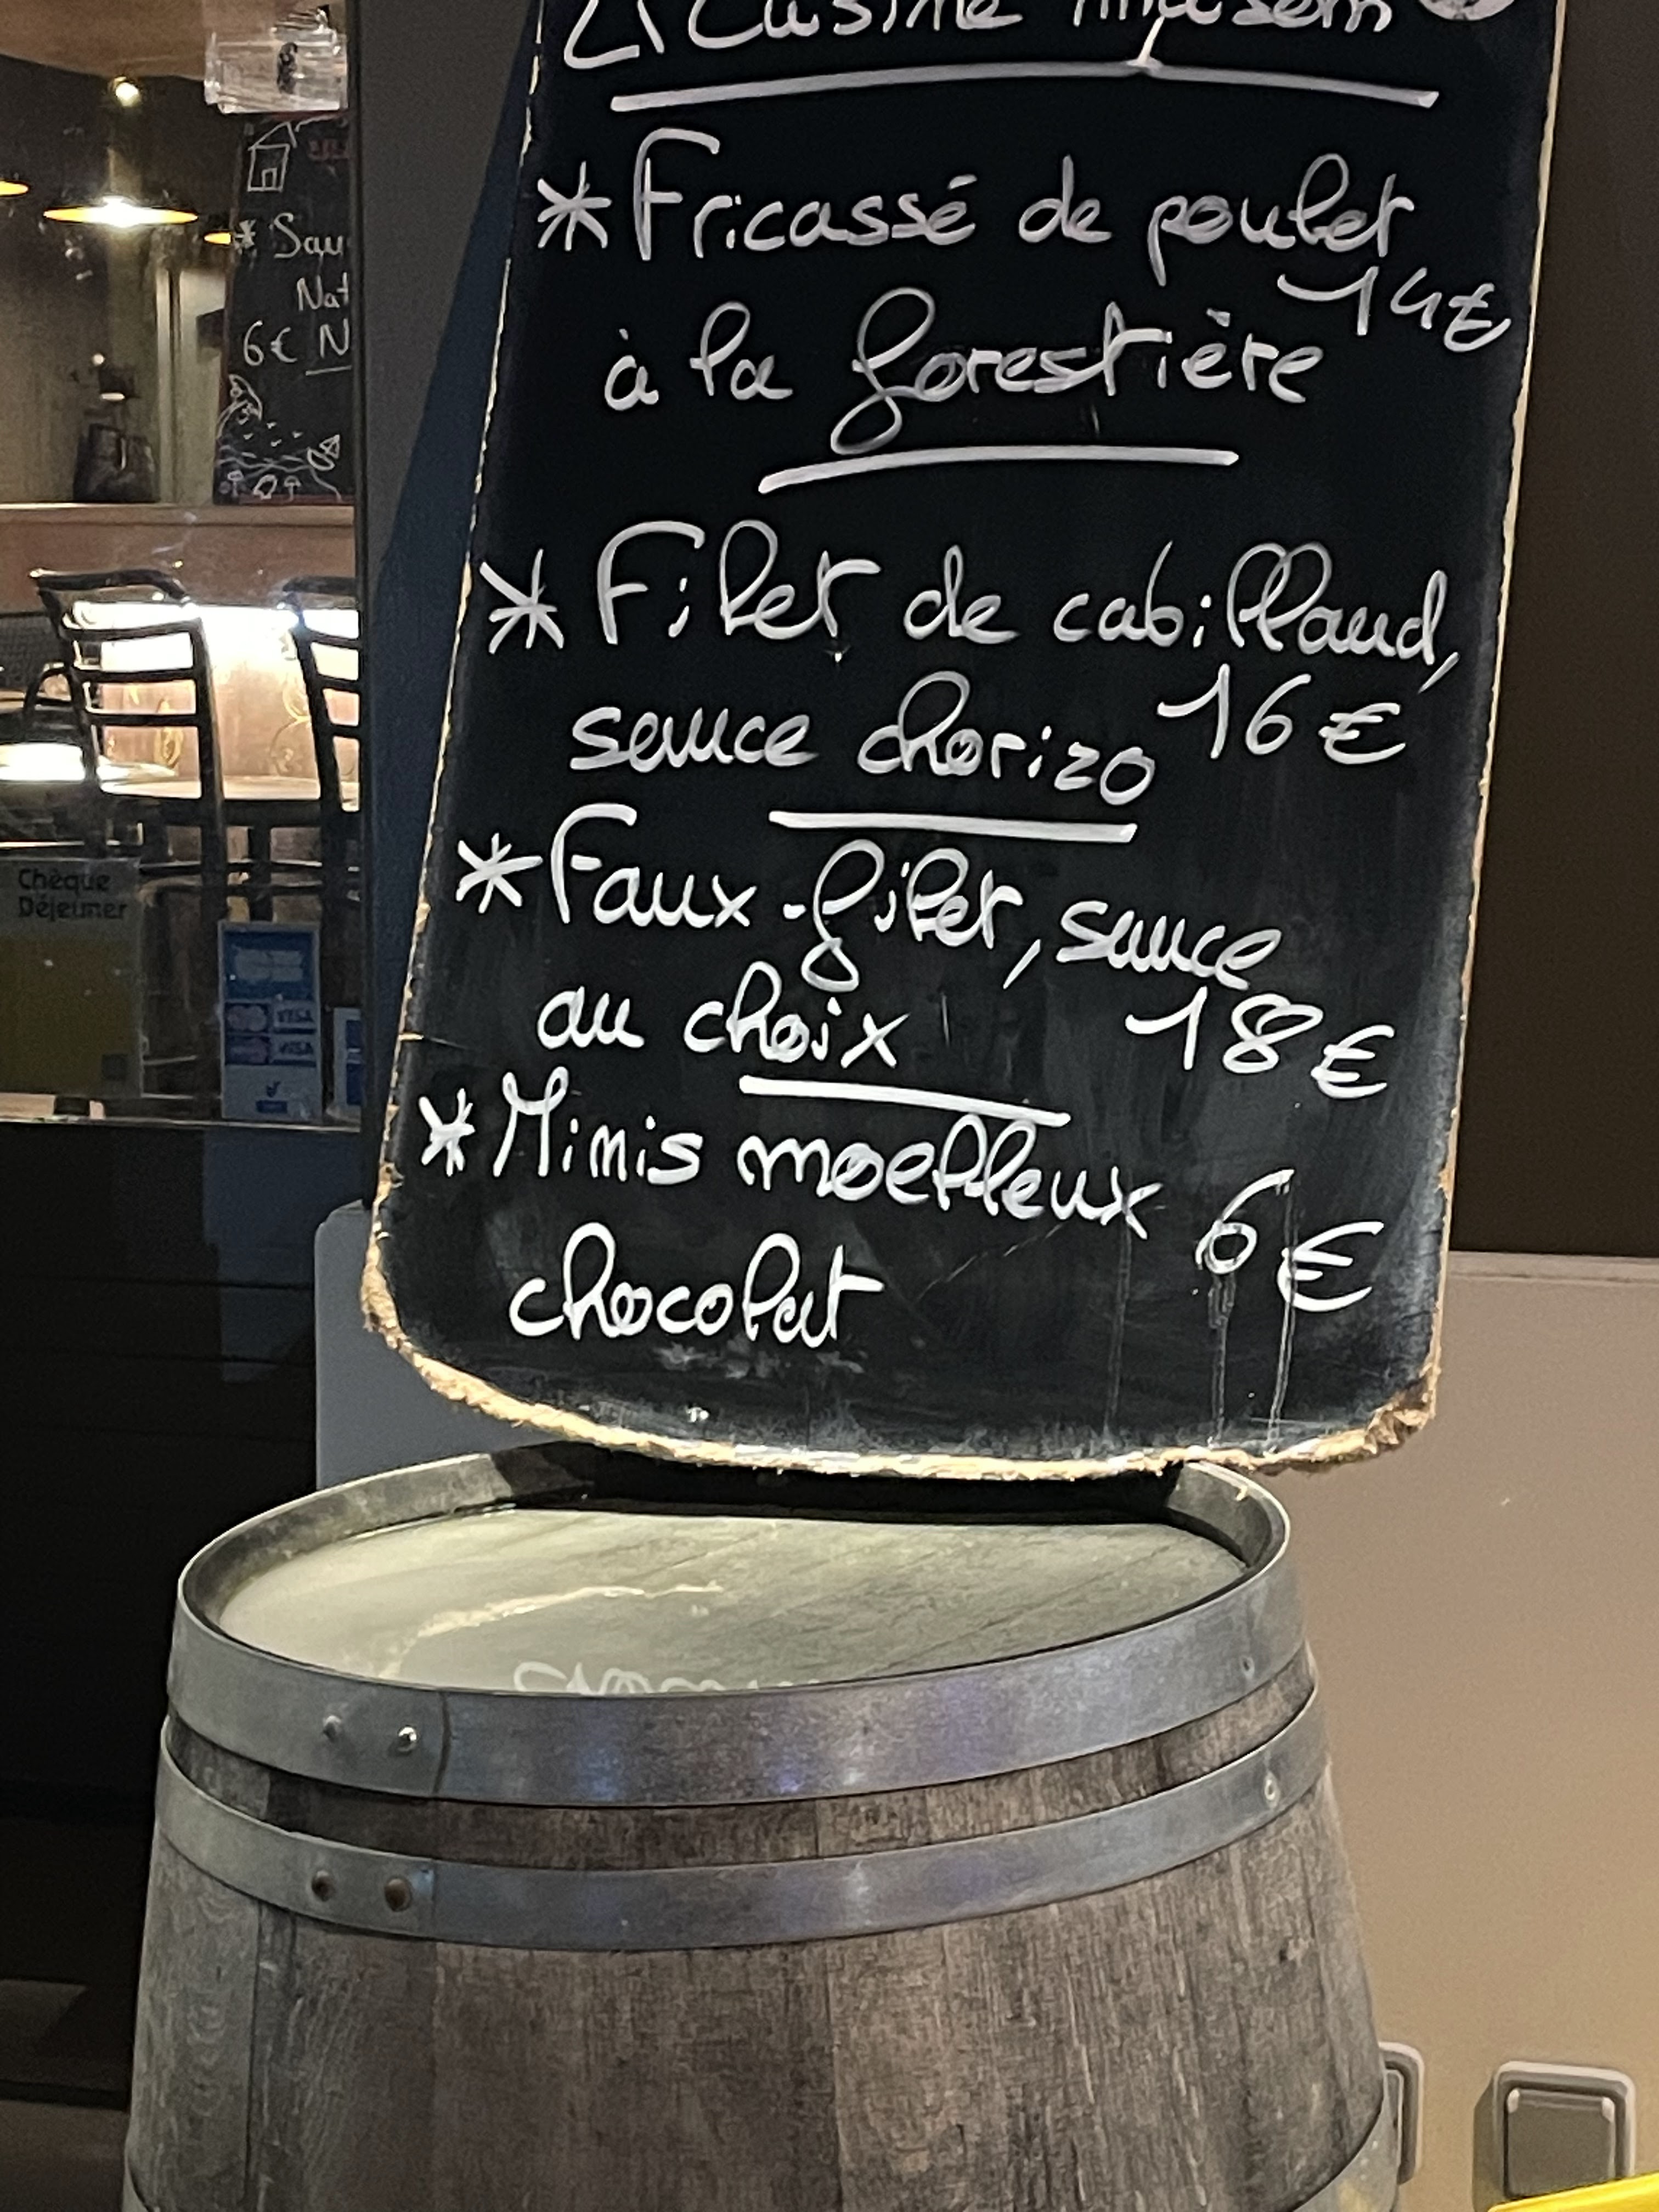 Cuisine maison
* Fricassé de poulet
14€
à la forestière
* Filet de cabillaud,
sauce chorizo 16€
* Faux-filet, sauce
au choix 18€
* Minis moelleux 6€
chocolat
* Sau
Nat
6€ N
Chèque
Déjeuner
VISA
VISA